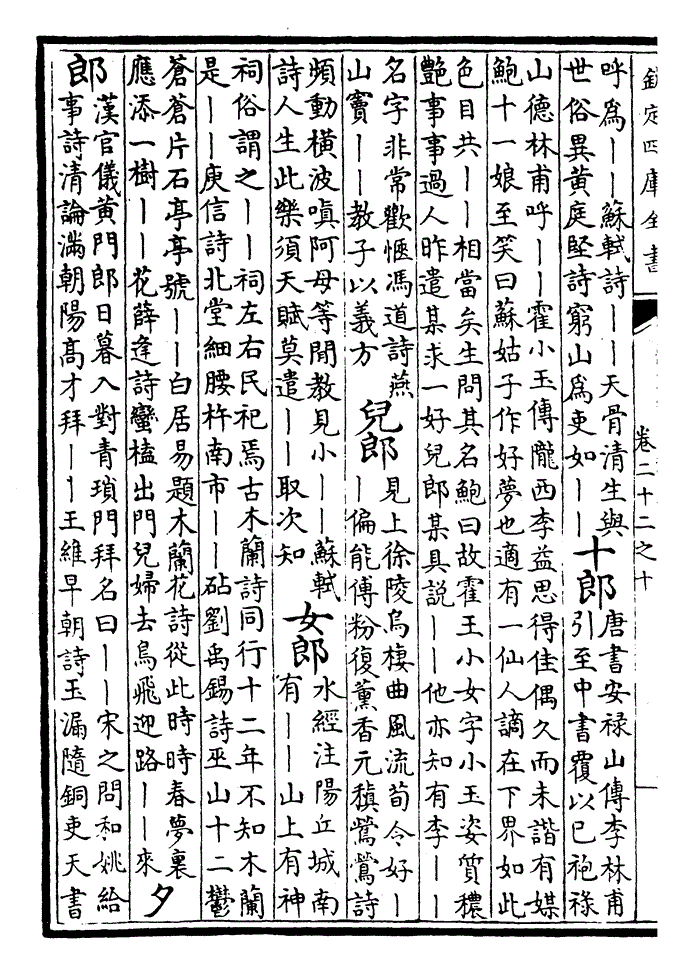 欽定四庫全書 卷二十二之十
呼為——蘇軾詩——天骨清生與
世俗異黃庭堅詩窮山為吏如——
十郎
唐書安祿山傳李林甫
引至中書覆以己袍祿
山德林甫呼——霍小玉傳隴西李益思得佳偶久而未諧有媒
鮑十一娘至笑曰蘇姑子作好夢也適有一仙人謫在下界如此
色目共——相當矣生問其名鮑曰故霍王小女字小玉姿質穠
艷事事過人昨遣某求一好兒郎某具說——他亦知有李——
名字非常歡愜馮道詩燕
山竇——教子以義方
兒郎
見上徐陵烏棲曲風流荀令好—
—偏能傅粉復薰香元稹鶯鶯詩
頻動橫波嗔阿母等閒教見小——蘇軾
詩人生此樂須天賦莫遣——取次知
女郎
水經注陽丘城南
有——山上有神
祠俗謂之——祠左右民祀焉古木蘭詩同行十二年不知木蘭
是——庾信詩北堂細腰杵南市——砧劉禹錫詩巫山十二鬱
蒼蒼片石亭亭號——白居易題木蘭花詩從此時時春夢裏
應添一樹——花薛逢詩蠻榼出門兒婦去烏飛迎路——來
夕
郎
漢官儀黃門郎日暮入對青瑣門拜名曰——宋之問和姚給
事詩清論滿朝陽高才拜——王維早朝詩玉漏隨銅吏天書